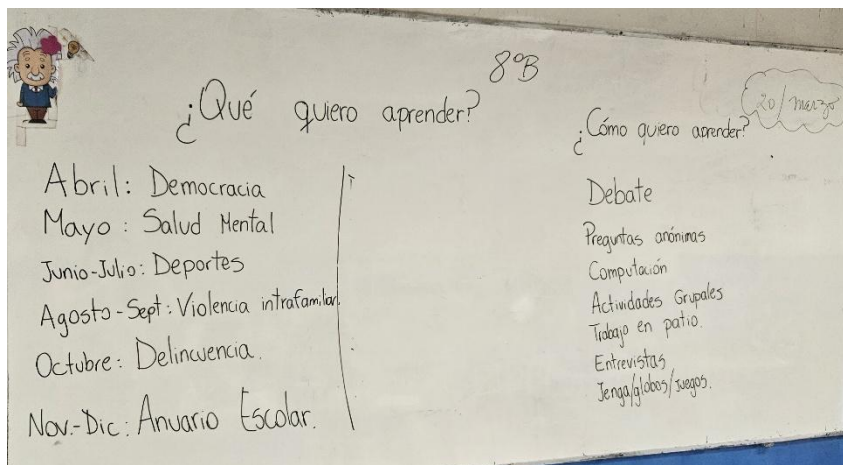 8°B
20/marzo
¿Qué quiero aprender?
Abril: Democracia
Mayo: Salud Mental
Junio-Julio: Deportes
Agosto-Sept: Violencia intrafamiliar.
Octubre: Delincuencia.
Nov.-Dic: Anuario Escolar.
¿Cómo quiero aprender?
Debate
Preguntas anónimas
Computación
Actividades Grupales
Trabajo en patio.
Entrevistas
Jenga/globos/juegos.